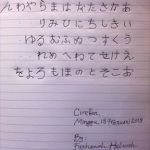 あいうえお
かきくけこ
さしすせそ
たちつてと
なにぬねの
はひふへほ
まみむめも
らりるれろ
やゆよ
わを
ん
Cirebon,
Minggu, 18 Februari 2018
By: